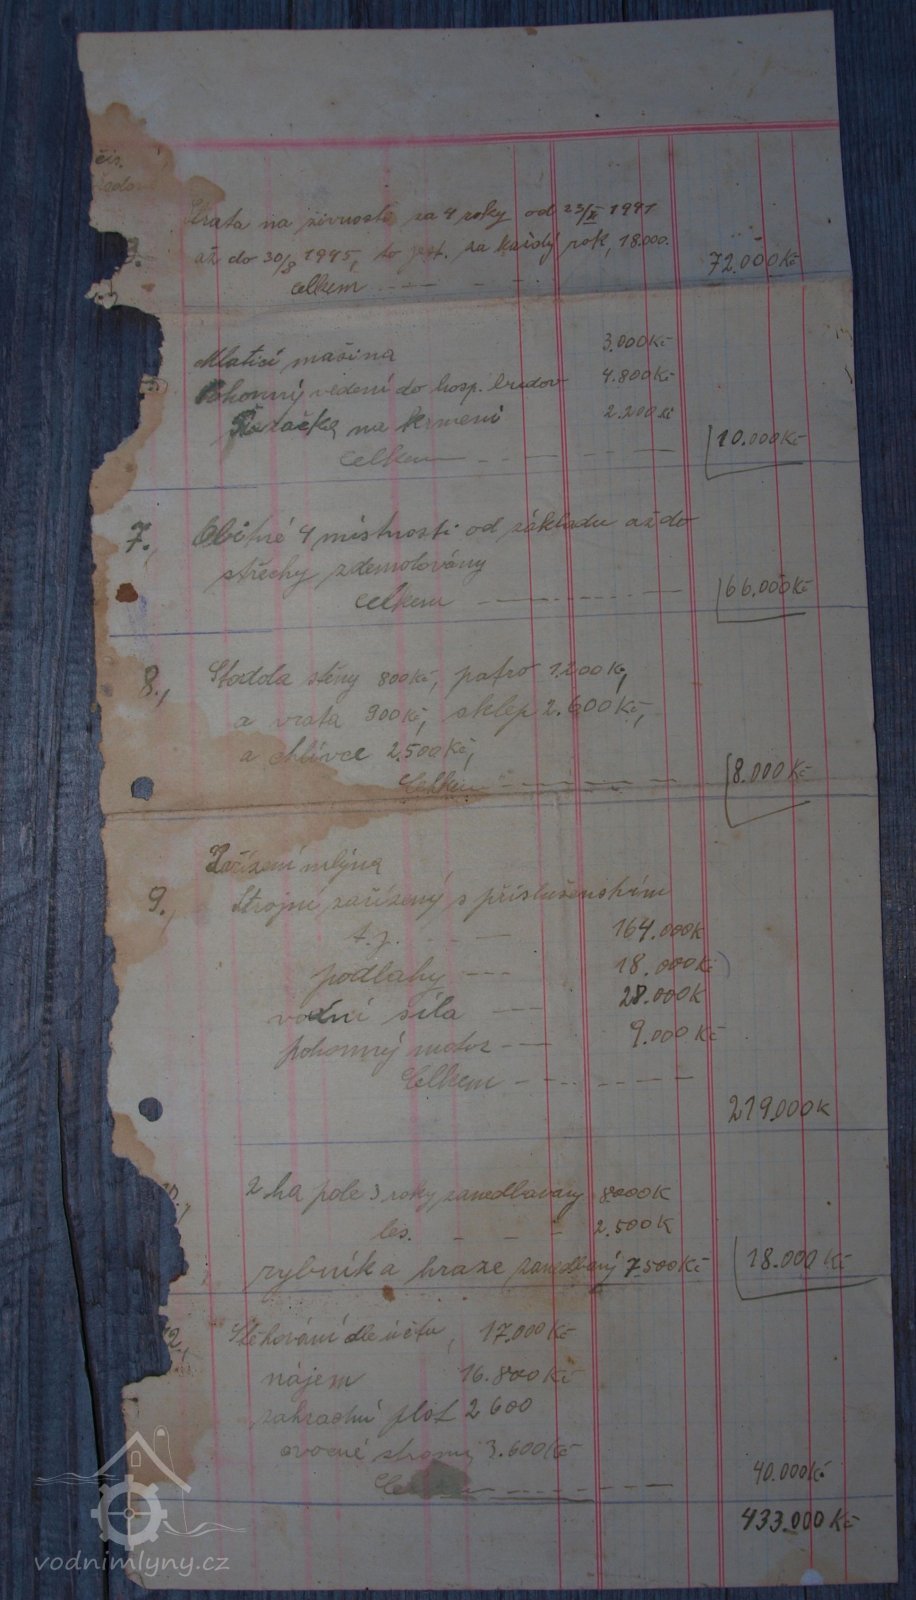 čís.
3.
Ztráta na živnosti za 4 roky od 23/X 1941
až do 30/8 1945, to jest. za každý rok, 18.000.
celkem - - - - 72.000 Kč
Mlaticí mašina 3.000 Kč
Pohonný vedení do hosp. budov 4.800 Kč
Řezačka na krmení 2.200 Kč
celkem - - - - 10.000 Kč
7., Obitné 4 místnosti od základu až do
střechy zdemolovány
celkem - - - - 66.000 Kč
8., Stodola stěny 800 Kč, patro 1.200 Kč,
a vrata 900 Kč, sklep 2.600 Kč,
a chlívce 2.500 Kč,
Celkem - - - - 8.000 Kč
Zařízení mlýna
9., Strojne zařízený s příslušenstvím
t.j. - - 164.000 K
podlahy - - - 18.000 Kč
vodní síla - - - 28.000 K
pohonný motor - - - 9.000 Kč
Celkem - - - -
219.000 K
2 ha pole 3 roky zanedbavany 8000 K
les. - - - - 2.500 K
rybník a hraze zanedbaný 7.500 Kč 18.000 Kč
12, Stěhování dle účtu, 17.000 Kč
nájem 16.800 Kč
zahradní plot 2 600
ovocné stromy 3.600 Kč
40.000 Kč
433.000 Kč
vodnimlyny.cz